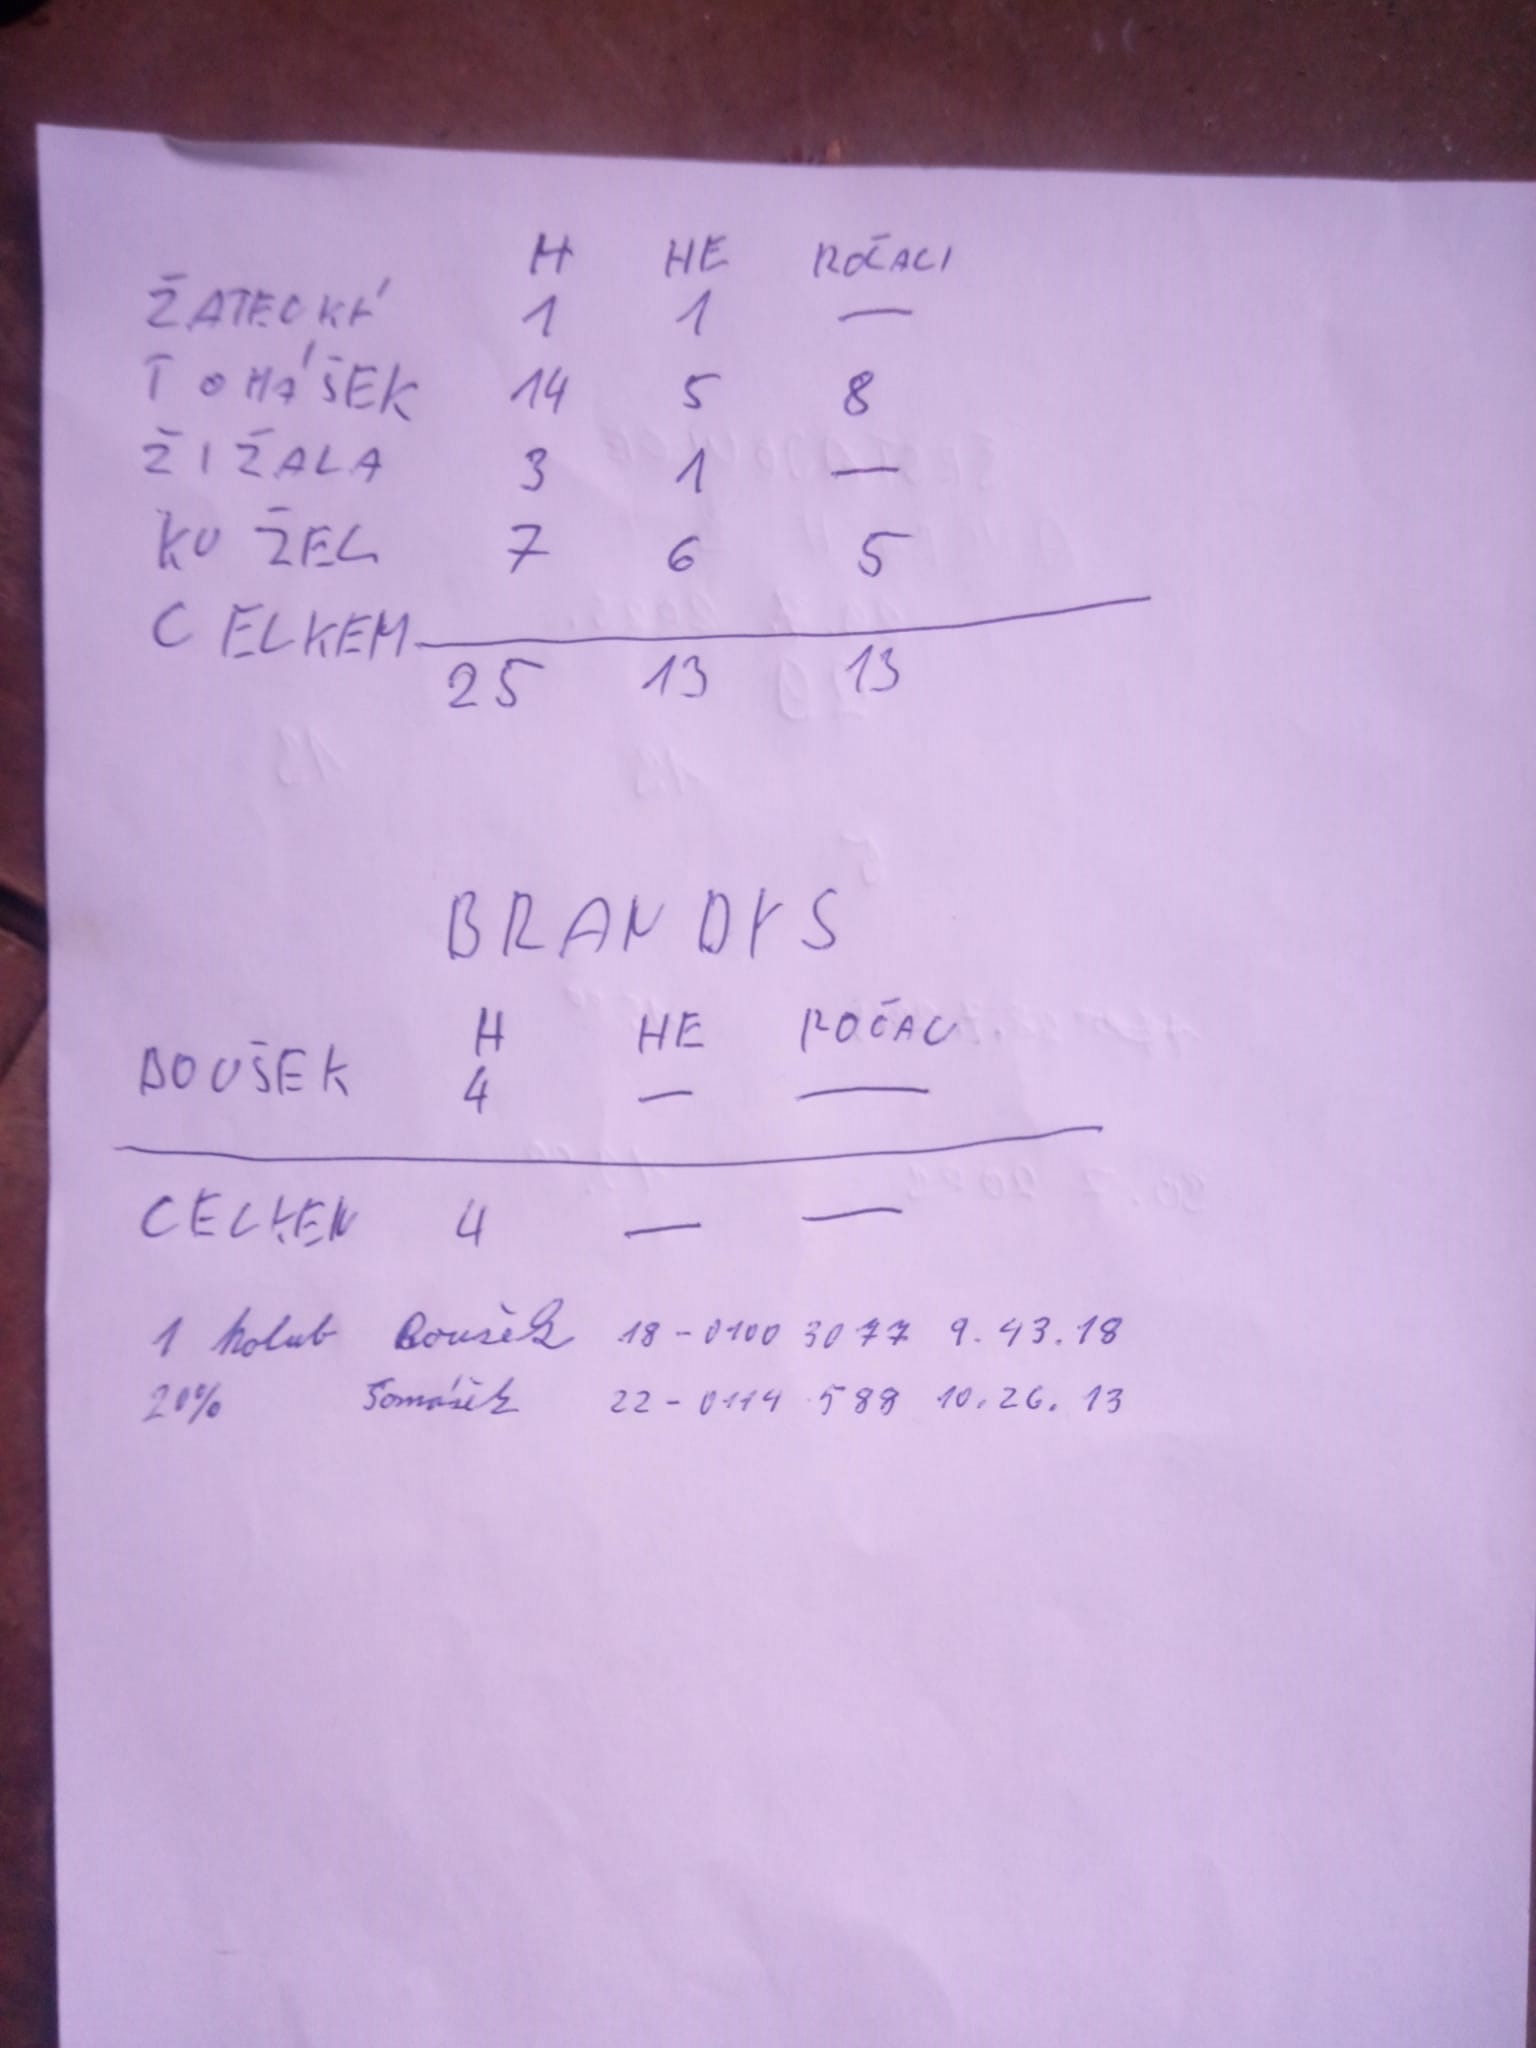 H HE ROČACI
ŽATECKÁ 1 1 —
TOMÁŠEK 14 5 8
ŽIŽALA 3 1 —
KUŽEL 7 6 5
CELKEM 25 13 13
BRANDYS
H HE ROČACI
BOUŠEK 4 — —
CELKEM 4 — —
1 holub Boušek 18-0100 3077 9.43.18
20% Tomášek 22-0114 588 10.26.13